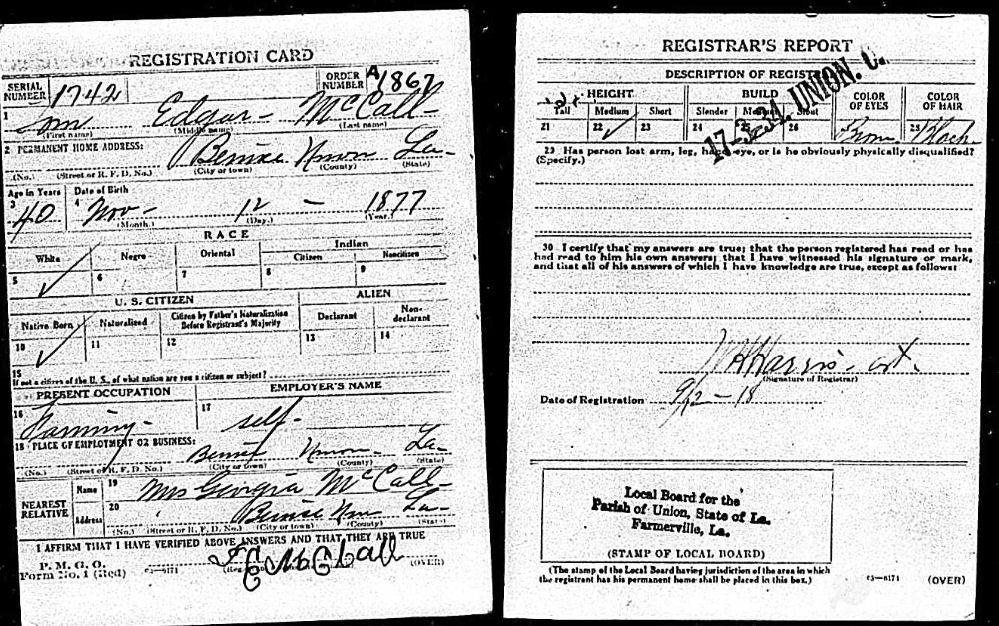 REGISTRATION CARD
SERIAL NUMBER 1742 ORDER NUMBER A1867
1 Edgar McCall
(First name) (Middle name) (Last name)
2 PERMANENT HOME ADDRESS:
Bernice Union La-
(No.) (Street or R. F. D. No.) (City or town) (County) (State)
Age in Years Date of Birth
3 40 4 Nov- 12 - 1877
(Month.) (Day.) (Year.)
RACE
White Negro Oriental Indian
Citizen Noncitizen
5 6 7 8 9
U. S. CITIZEN ALIEN
Native Born Naturalized Citizen by Father's Naturalization Before Registrant's Majority Declarant Non-declarant
10 11 12 13 14
15
If not a citizen of the U. S., of what nation are you a citizen or subject?
PRESENT OCCUPATION EMPLOYER'S NAME
16 Farming- 17 self-
18 PLACE OF EMPLOYMENT OR BUSINESS:
Bernice Union La-
(No.) (Street or R. F. D. No.) (City or town) (County) (State)
NEAREST RELATIVE Name 19 Mrs Georgia McCall-
Address 20 Bernice Un La-
(No.) (Street or R. F. D. No.) (City or town) (County) (State)
I AFFIRM THAT I HAVE VERIFIED ABOVE ANSWERS AND THAT THEY ARE TRUE
P. M. G. O.
Form No. 1 (Red) c3-6171 (OVER)
REGISTRAR'S REPORT
DESCRIPTION OF REGISTRANT
HEIGHT BUILD COLOR OF EYES COLOR OF HAIR
Tall Medium Short Slender Medium Stout
21 22 23 24 26 Brown 28 Black
17-3-34. UNION. C.
29 Has person lost arm, leg, hand, eye, or is he obviously physically disqualified?
(Specify.)
30 I certify that my answers are true; that the person registered has read or has
had read to him his own answers; that I have witnessed his signature or mark,
and that all of his answers of which I have knowledge are true, except as follows:
Harris
(Signature of Registrar)
Date of Registration 9/12-18
Local Board for the
Parish of Union, State of La.
Farmerville, La.
(STAMP OF LOCAL BOARD)
(The stamp of the Local Board having jurisdiction of the area in which
the registrant has his permanent home shall be placed in this box.)
c3-6171 (OVER)